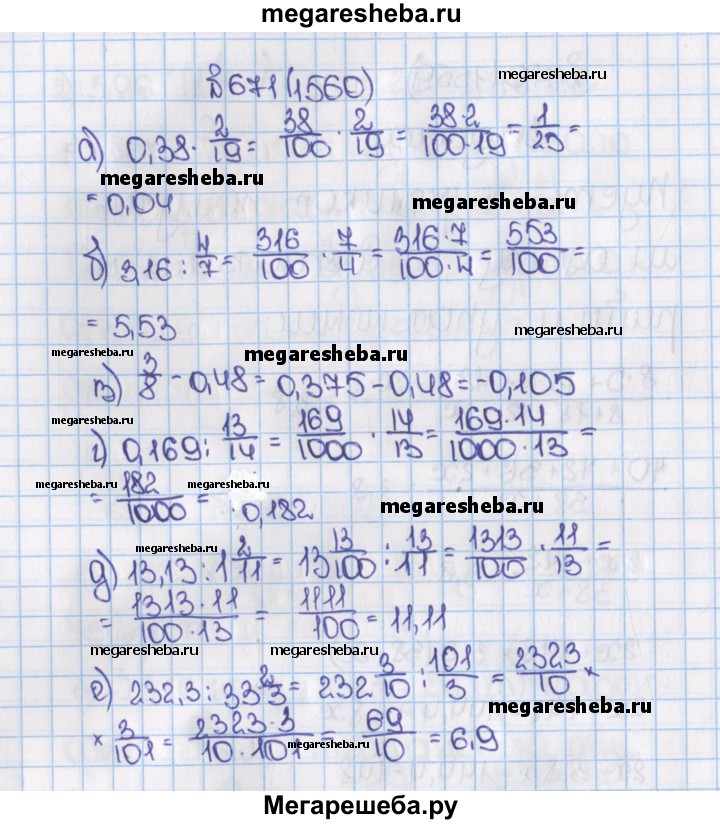 megaresheba.ru
№671(1560)
megaresheba.ru
а) 0,38 · 2/19 = 38/100 · 2/19 = 38·2/100·19 = 1/25 =
megaresheba.ru
= 0,04
megaresheba.ru
б) 3,16 : 4/7 = 316/100 · 7/4 = 316·7/100·4 = 553/100 =
= 5,53
megaresheba.ru
megaresheba.ru
megaresheba.ru
в) 3/8 - 0,48 = 0,375 - 0,48 = -0,105
megaresheba.ru
г) 0,169 : 13/14 = 169/1000 · 14/13 = 169·14/1000·13 =
megaresheba.ru
megaresheba.ru
= 182/1000 = 0,182
megaresheba.ru
megaresheba.ru
д) 13,13 : 1 2/11 = 13 13/100 : 13/11 = 1313/100 · 11/13 =
megaresheba.ru
= 1313·11/100·13 = 1111/100 = 11,11
megaresheba.ru
megaresheba.ru
е) 232,3 : 33 2/3 = 232 3/10 : 101/3 = 2323/10 ×
megaresheba.ru
× 3/101 = 2323·3/10·101 = 69/10 = 6,9
megaresheba.ru
megaresheba.ru
Мегарешеба.ру